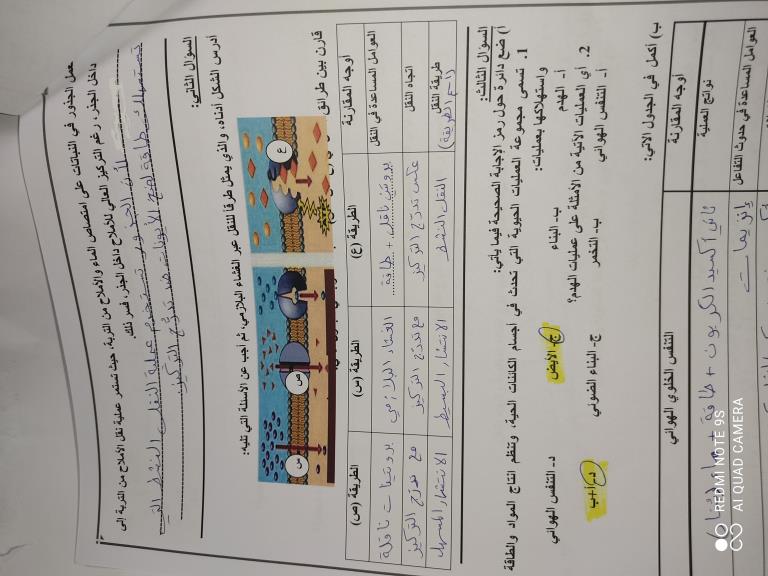 تعمل الجذور في النباتات على امتصاص الماء والأملاح من التربة، حيث تستمر عملية نقل الأملاح من التربة إلى
داخل الجذر، رغم التركيز العالي للأملاح داخل الجذر، فسر ذلك.
لأن الجذور تستخدم عملية النقل النشط التي
تستهلك طاقة ضخ الأيونات ضد تدرج التركيز
السؤال الثاني:
أدرس الشكل أدناه، والذي يمثل طرقا للنقل عبر الغشاء البلازمي، ثم أجب عن الأسئلة التي تليه:
ع
ص
س
قارن بين طرائق
أوجه المقارنة
الطريقة (ع)
الطريقة (س)
الطريقة (ص)
العوامل المساعدة في النقل
بروتين ناقل + طاقة
الغشاء البلازمي
بروتينات ناقلة
اتجاه النقل
عكس تدرج التركيز
مع تدرج التركيز
مع تدرج التركيز
طريقة النقل
(اسم الطريقة)
النقل النشط
الانتشار البسيط
الانتشار المسهل
السؤال الثالث:
أ) ضع دائرة حول رمز الإجابة الصحيحة فيما يأتي:
1. تسمى مجموعة العمليات الحيوية التي تحدث في أجسام الكائنات الحية، وتنظم انتاج المواد والطاقة
واستهلاكها بعمليات:
أ- الهدم
ب- البناء
ج- الأيض
د- التنفس الهوائي
2. أي العمليات الآتية من الأمثلة على عمليات الهدم؟
أ- التنفس الهوائي
ب- التخمر
ج- البناء الضوئي
د- أ+ب
ب) أكمل في الجدول الآتي:
أوجه المقارنة
التنفس الخلوي الهوائي
نواتج العملية
ثاني أكسيد الكربون + طاقة + ماء
العوامل المساعدة في حدوث التفاعل
إنزيمات
REDMI NOTE 9S
AI QUAD CAMERA